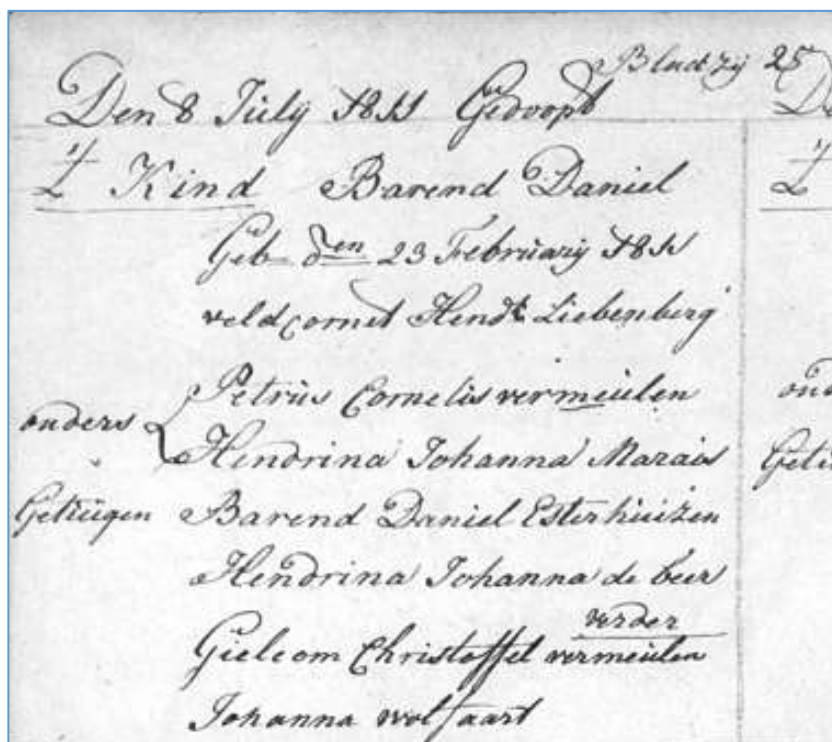 Bladzij 25
Den 8 Julij 1811 Gedoopt
't Kind Barend Daniel
Geb den 23 Februarij 1811
veldcornet Hendk Liebenberg
Petrus Cornelis vermeulen
ouders
Hendrina Johanna Marais
Getuigen Barend Daniel Esterhuizen
Hendrina Johanna de beer
verder
Gieleom Christoffel vermeulen
Johanna wolfaart